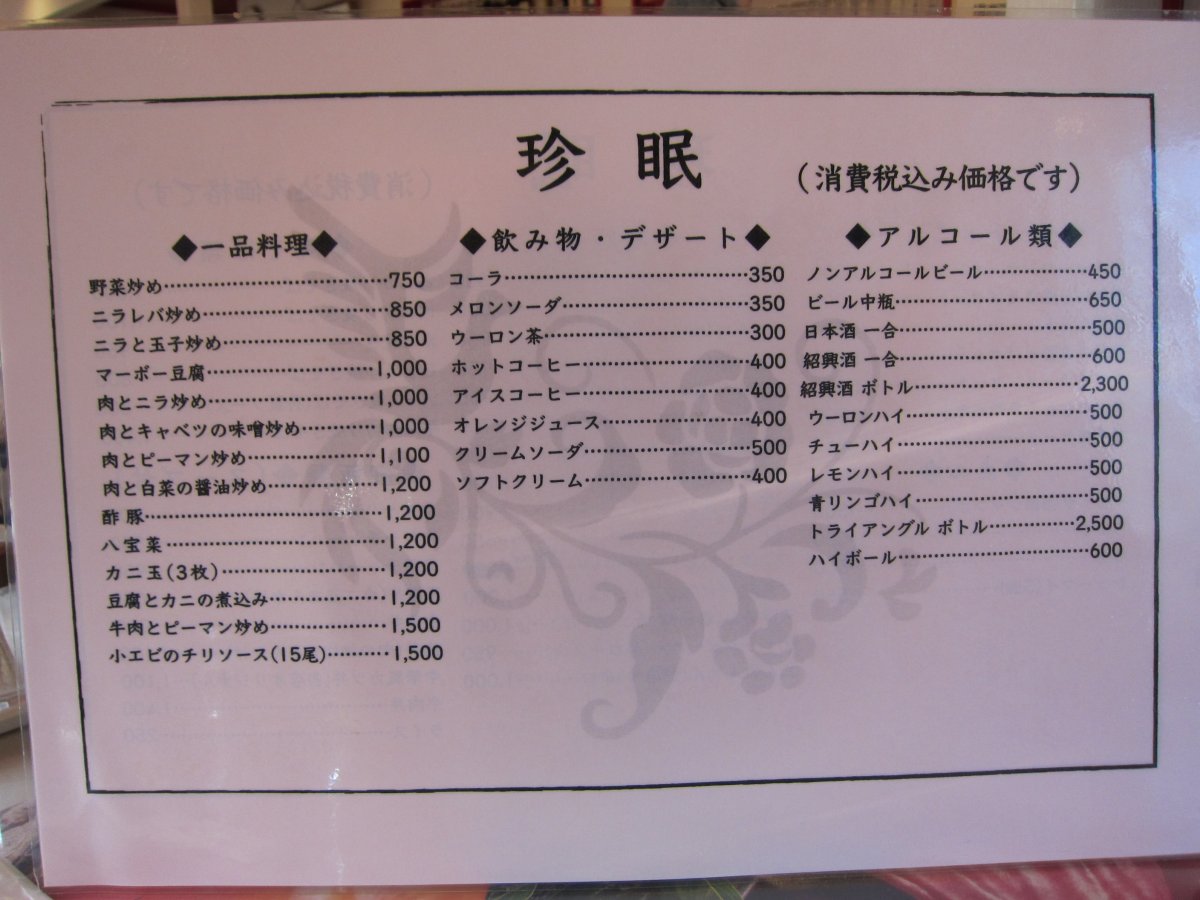 珍眠
(消費税込み価格です)
◆一品料理◆
野菜炒め…750
ニラレバ炒め…850
ニラと玉子炒め…850
マーボー豆腐…1,000
肉とニラ炒め…1,000
肉とキャベツの味噌炒め…1,000
肉とピーマン炒め…1,100
肉と白菜の醤油炒め…1,200
酢豚…1,200
八宝菜…1,200
カニ玉(3枚)…1,200
豆腐とカニの煮込み…1,200
牛肉とピーマン炒め…1,500
小エビのチリソース(15尾)…1,500
◆飲み物・デザート◆
コーラ…350
メロンソーダ…350
ウーロン茶…300
ホットコーヒー…400
アイスコーヒー…400
オレンジジュース…400
クリームソーダ…500
ソフトクリーム…400
◆アルコール類◆
ノンアルコールビール…450
ビール中瓶…650
日本酒 一合…500
紹興酒 一合…600
紹興酒 ボトル…2,300
ウーロンハイ…500
チューハイ…500
レモンハイ…500
青リンゴハイ…500
トライアングル ボトル…2,500
ハイボール…600